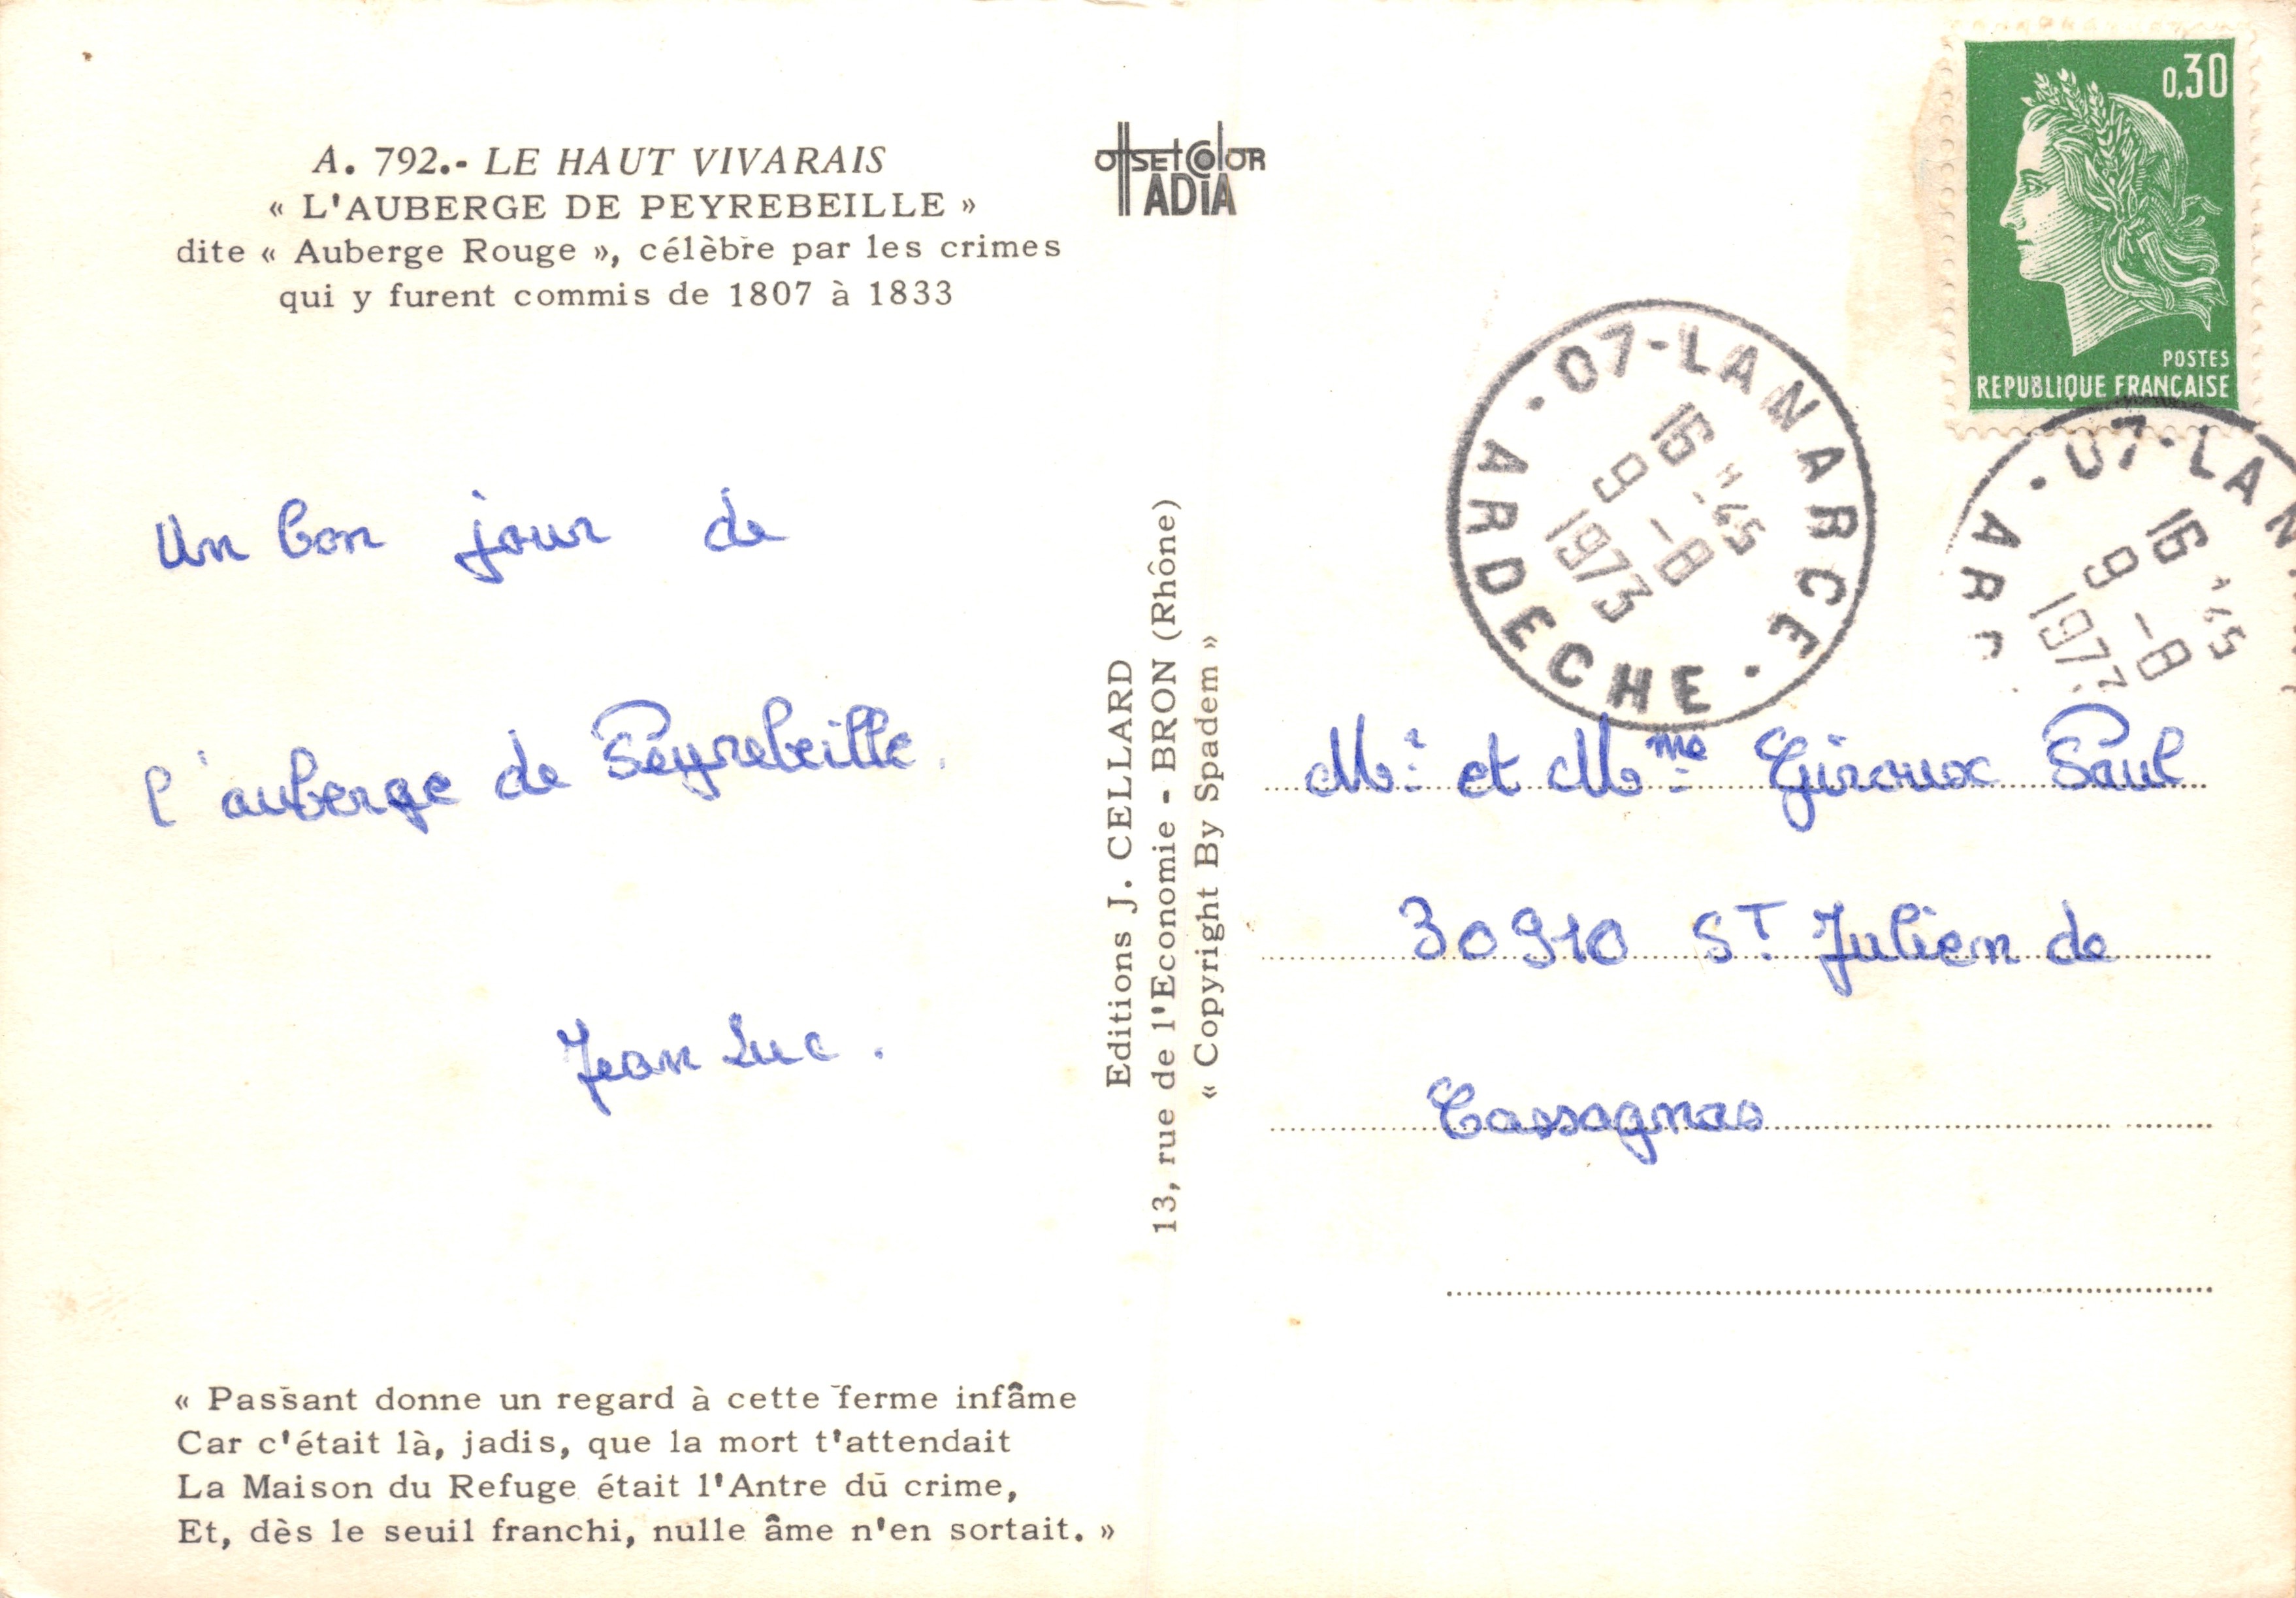 A. 792.- LE HAUT VIVARAIS
« L'AUBERGE DE PEYREBEILLE »
dite « Auberge Rouge », célèbre par les crimes
qui y furent commis de 1807 à 1833
Un bon jour de
l'auberge de Peyrebeille.
Jean Luc.
« Passant donne un regard à cette ferme infâme
Car c'était là, jadis, que la mort t'attendait
La Maison du Refuge était l'Antre du crime,
Et, dès le seuil franchi, nulle âme n'en sortait. »
offset color
ADIA
Editions J. CELLARD
13, rue de l'Economie - BRON (Rhône)
« Copyright By Spadem »
0,30
POSTES
REPUBLIQUE FRANCAISE
07-LANARCE
16 H 45
9 -8
1973
ARDECHE
07-LAN
16 45
9 -8
197
AR
Mr. et Mme Giroux Paul
30910 ST. Julien de
Cassagnas